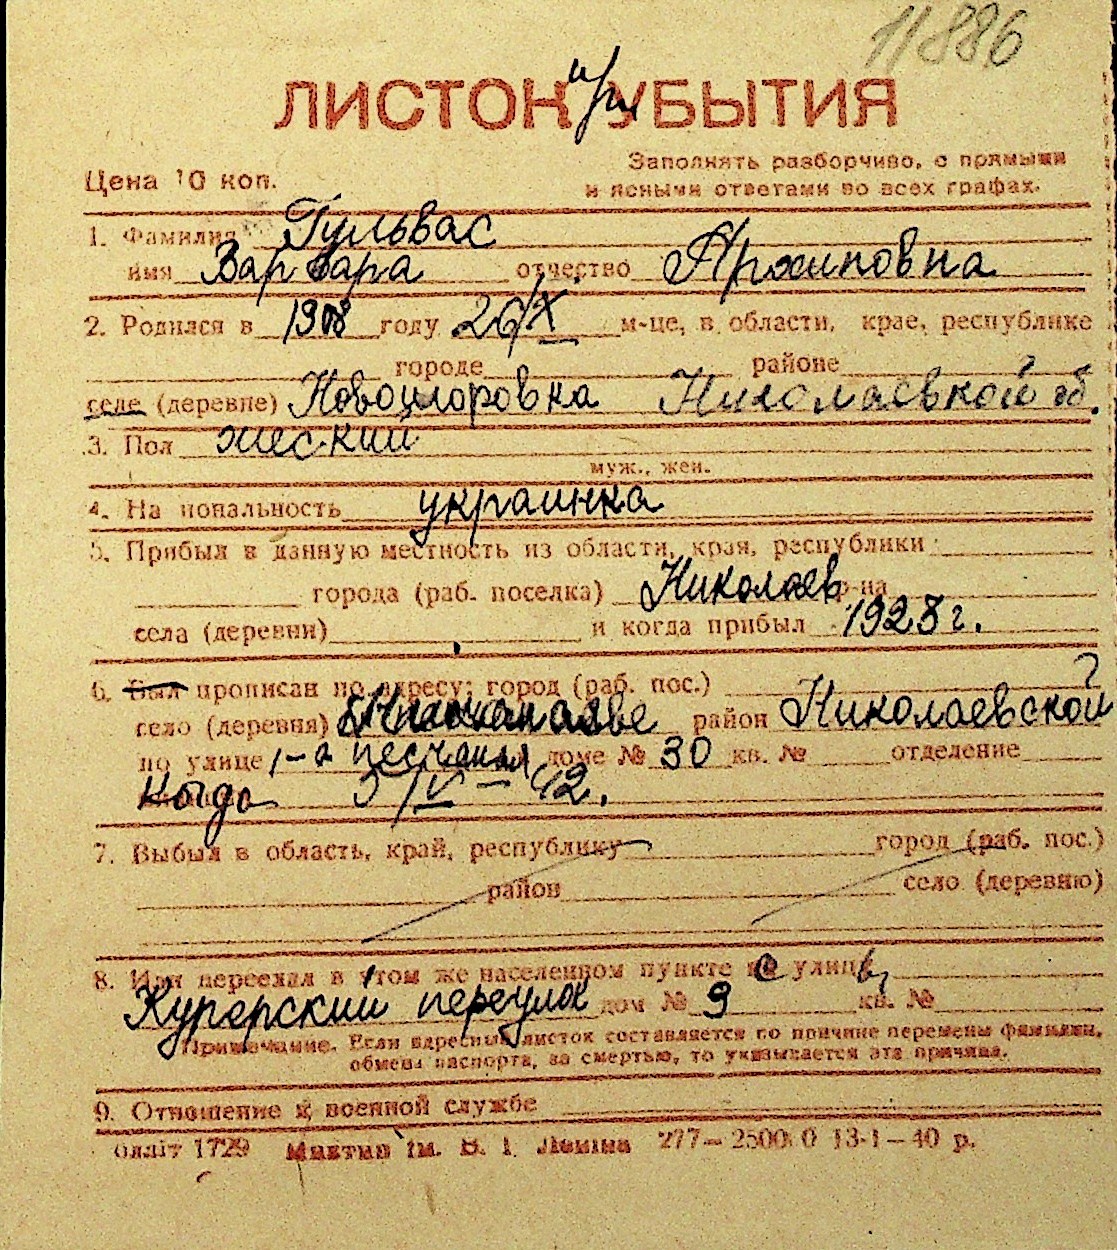 11886
ЛИСТОК УБЫТИЯ
при
Заполнять разборчиво, с прямыми
Цена 10 коп.
и ясными ответами во всех графах.
1. Фамилия Гульвас
имя Варвара отчество Архиповна
2. Родился в 1908 году 26/X м-це, в области, крае, республике
городе районе
селе (деревне) Николаевкой об.
3. Пол жеский
муж., жен.
4. На иональность украинка
5. Прибыл в данную местность из области, края, республики
города (раб. поселка) Николаев р-на
села (деревни) и когда прибыл 1928 г.
6. Был прописан по адресу: город (раб. пос.)
село (деревня) район Николаевской
по улице 1-а песчаная доме № 30 кв. № отделение
Когда 5/IV - 42.
7. Выбыл в область, край, республику город (раб. пос.)
район село (деревню)
8. Или переехал в этом же населенном пункте с улицы
Курерский переулок дом № 9 кв. №
Примечание. Если адресный листок составляется по причине перемены фамилии,
обмена паспорта, за смертью, то указывается эта причина.
9. Отношение к военной службе
блліт 1729 їм. В. І. Леніна 277— 2500 0 13-1—40 р.